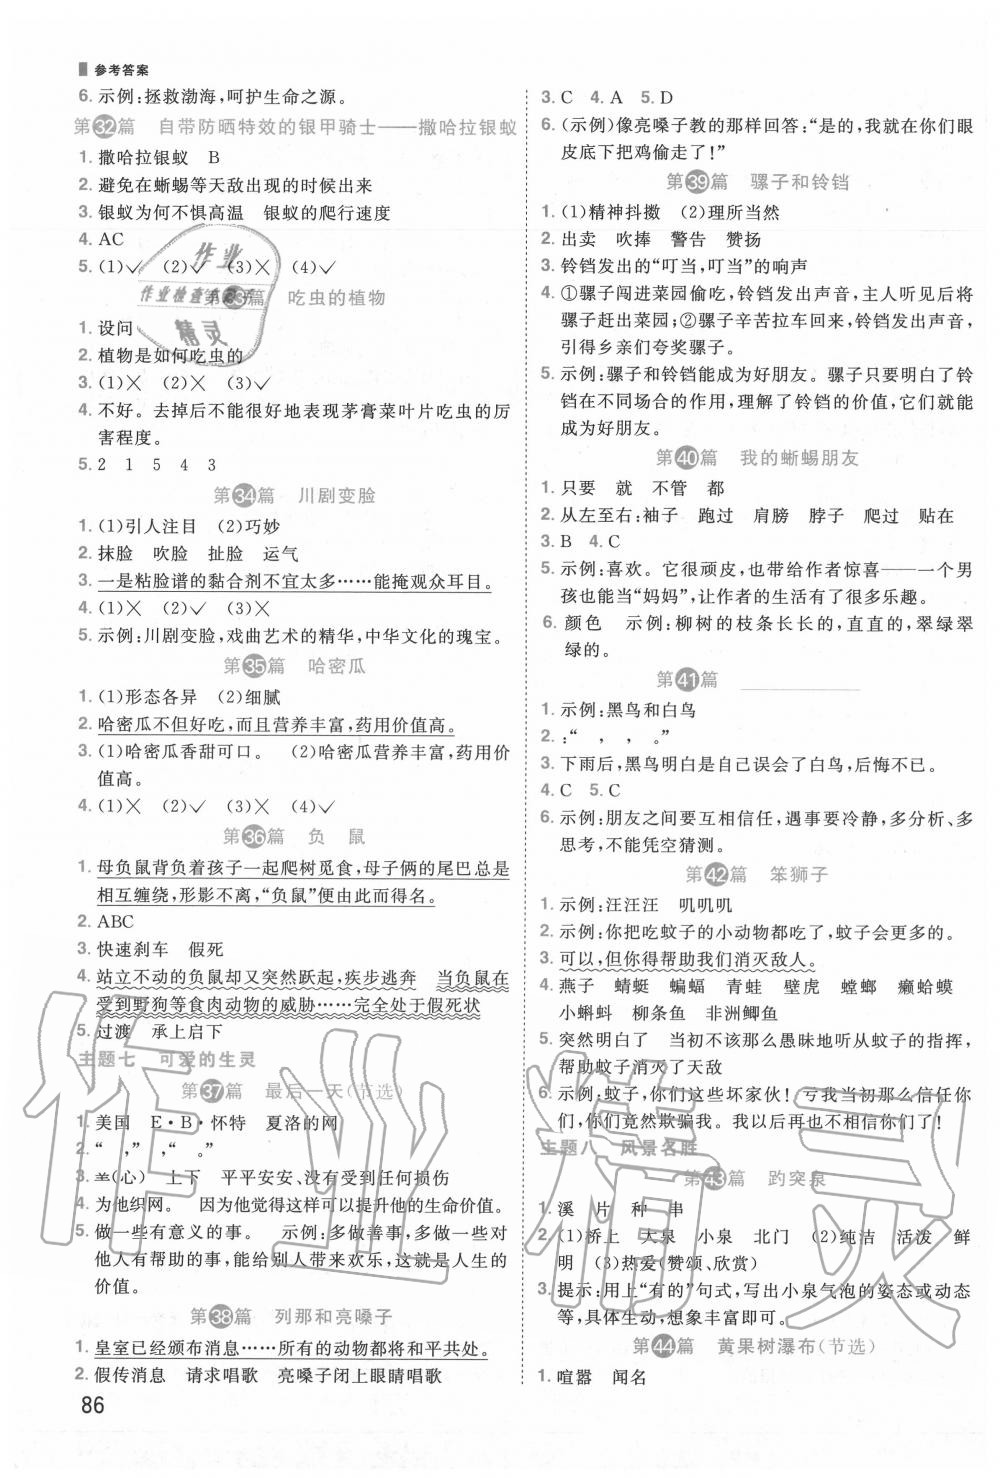 参考答案
6. 示例:拯救渤海,呵护生命之源。
第32篇 自带防晒特效的银甲骑士——撒哈拉银蚁
1. 撒哈拉银蚁 B
2. 避免在蜥蜴等天敌出现的时候出来
3. 银蚁为何不惧高温 银蚁的爬行速度
4. AC
5. (1)✓ (2)✓ (3)✕ (4)✓
第33篇 吃虫的植物
1. 设问
2. 植物是如何吃虫的
3. (1)✕ (2)✕ (3)✓
4. 不好。去掉后不能很好地表现茅膏菜叶片吃虫的厉
害程度。
5. 2 1 5 4 3
第34篇 川剧变脸
1. (1)引人注目 (2)巧妙
2. 抹脸 吹脸 扯脸 运气
3. 一是粘脸谱的黏合剂不宜太多……能掩观众耳目。
4. (1)✕ (2)✓ (3)✕
5. 示例:川剧变脸,戏曲艺术的精华,中华文化的瑰宝。
第35篇 哈密瓜
1. (1)形态各异 (2)细腻
2. 哈密瓜不但好吃,而且营养丰富,药用价值高。
3. (1)哈密瓜香甜可口。 (2)哈密瓜营养丰富,药用价
值高。
4. (1)✕ (2)✓ (3)✕ (4)✓
第36篇 负 鼠
1. 母负鼠背负着孩子一起爬树觅食,母子俩的尾巴总是
相互缠绕,形影不离,“负鼠”因此而得名。
2. ABC
3. 快速刹车 假死
4. 站立不动的负鼠却又突然跃起,疾步逃奔 当负鼠在
受到野狗等食肉动物的威胁……完全处于假死状
5. 过渡 承上启下
主题七 可爱的生灵
第37篇 最后一天(节选)
1. 美国 E·B·怀特 夏洛的网
2. “ ,”,“ 。”
3. (心) 上下 平平安安、没有受到任何损伤
4. 为他织网。 因为他觉得这样可以提升他的生命价值。
5. 做一些有意义的事。 示例:多做善事,多做一些对
他人有帮助的事,能给别人带来欢乐,这就是人生的
价值。
第38篇 列那和亮嗓子
1. 皇室已经颁布消息……所有的动物都将和平共处。
2. 假传消息 请求唱歌 亮嗓子闭上眼睛唱歌
86
3. C 4. A 5. D
6. (示例)像亮嗓子教的那样回答:“是的,我就在你们眼
皮底下把鸡偷走了!”
第39篇 骡子和铃铛
1. (1)精神抖擞 (2)理所当然
2. 出卖 吹捧 警告 赞扬
3. 铃铛发出的“叮当,叮当”的响声
4. ①骡子闯进菜园偷吃,铃铛发出声音,主人听见后将
骡子赶出菜园;②骡子辛苦拉车回来,铃铛发出声音,
引得乡亲们夸奖骡子。
5. 示例:骡子和铃铛能成为好朋友。骡子只要明白了铃
铛在不同场合的作用,理解了铃铛的价值,它们就能
成为好朋友。
第40篇 我的蜥蜴朋友
1. 只要 就 不管 都
2. 从左至右:袖子 跑过 肩膀 脖子 爬过 贴在
3. B 4. C
5. 示例:喜欢。它很顽皮,也带给作者惊喜——一个男
孩也能当“妈妈”,让作者的生活有了很多乐趣。
6. 颜色 示例:柳树的枝条长长的,直直的,翠绿翠
绿的。
第41篇
1. 示例:黑鸟和白鸟
2. :“ , , 。”
3. 下雨后,黑鸟明白是自己误会了白鸟,后悔不已。
4. C 5. C
6. 示例:朋友之间要互相信任,遇事要冷静,多分析、多
思考,不能凭空猜测。
第42篇 笨狮子
1. 示例:汪汪汪 叽叽叽
2. 示例:你把吃蚊子的小动物都吃了,蚊子会更多的。
3. 可以,但你得帮助我们消灭敌人。
4. 燕子 蜻蜓 蝙蝠 青蛙 壁虎 螳螂 癞蛤蟆
小蝌蚪 柳条鱼 非洲鲫鱼
5. 突然明白了 当初不该那么愚昧地听从蚊子的指挥,
帮助蚊子消灭了天敌
6. 示例:蚊子,你们这些坏家伙!亏我当初那么信任你
们,你们竟然欺骗我。我以后再也不相信你们了!
主题八 风景名胜
第43篇 趵突泉
1. 溪 片 种 串
2. (1)桥上 大泉 小泉 北门 (2)纯洁 活泼 鲜
明 (3)热爱(赞颂、欣赏)
3. 提示:用上“有的”句式,写出小泉气泡的姿态或动态
等,具体生动,想象丰富即可。
第44篇 黄果树瀑布(节选)
1. 喧嚣 闻名
作业
作业检查
精灵
作业精灵